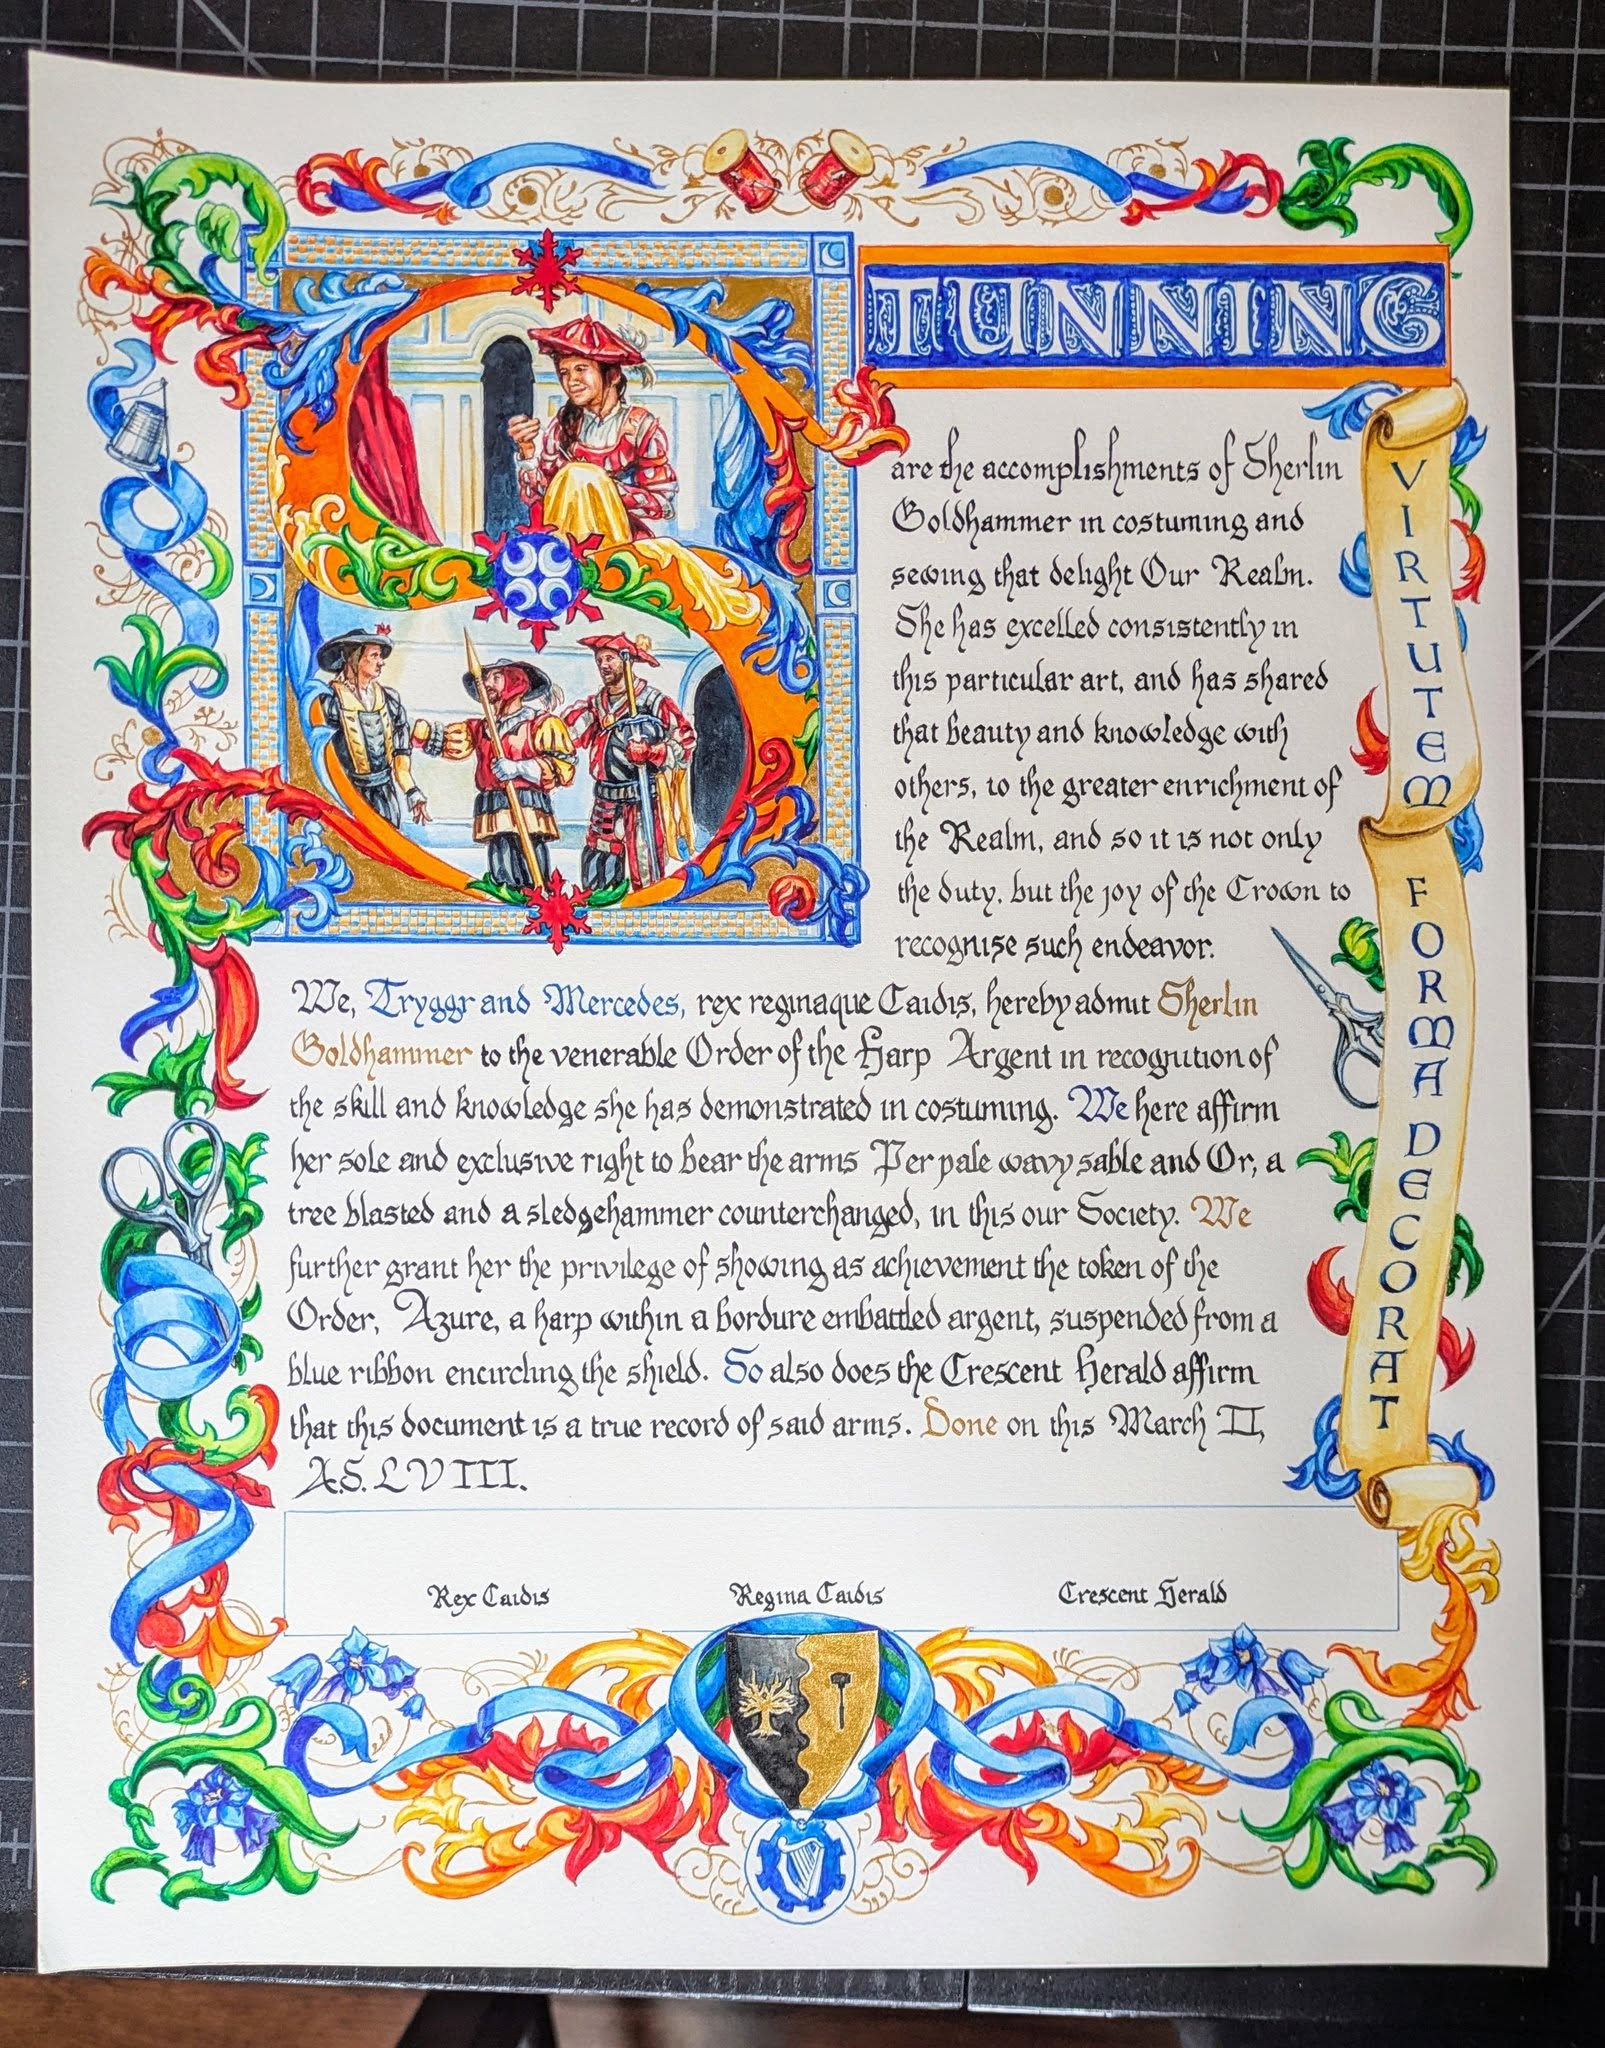 STUNNING
are the accomplishments of Sherlin
Goldhammer in costuming and
sewing that delight Our Realm.
She has excelled consistently in
this particular art, and has shared
that beauty and knowledge with
others, to the greater enrichment of
the Realm, and so it is not only
the duty, but the joy of the Crown to
recognise such endeavor.
We, Tryggr and Mercedes, rex reginaque Caidis, hereby admit Sherlin
Goldhammer to the venerable Order of the Harp Argent in recognition of
the skill and knowledge she has demonstrated in costuming. We here affirm
her sole and exclusive right to bear the arms Per pale wavy sable and Or, a
tree blasted and a sledgehammer counterchanged, in this our Society. We
further grant her the privilege of showing as achievement the token of the
Order, Azure, a harp within a bordure embattled argent, suspended from a
blue ribbon encircling the shield. So also does the Crescent Herald affirm
that this document is a true record of said arms. Done on this March II,
A.S. LVIII.
Rex Caidis Regina Caidis Crescent Herald
VIRTUTEM FORMA DECORAT